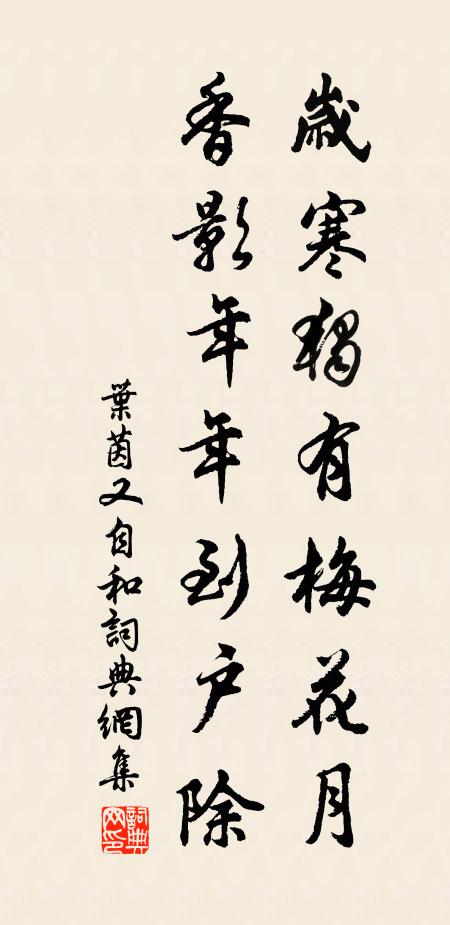 歲寒獨有梅花月
香影年年到戶除
葉茵又自和詞典網集
詞典網印